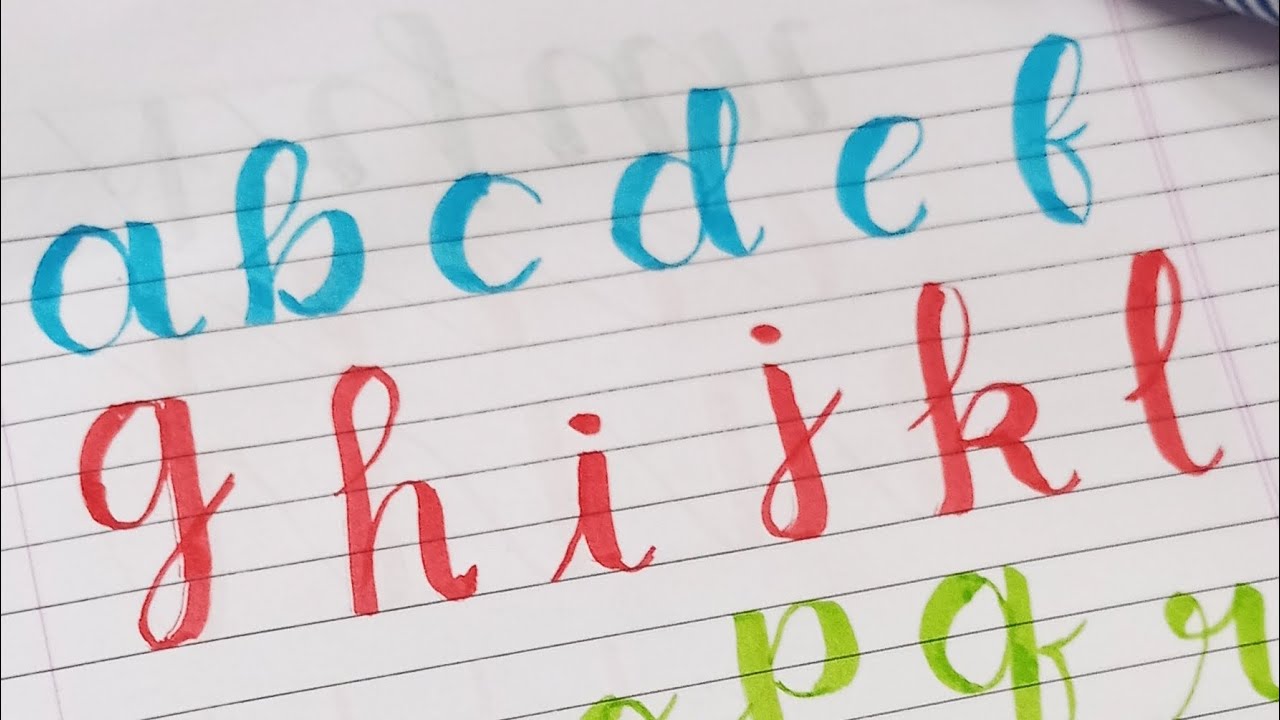 a b c d e f
g h i j k l
p q r